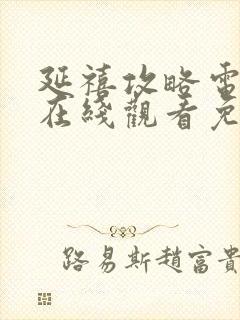 延禧攻略電
在綫觀看免
路易斯趙富貴